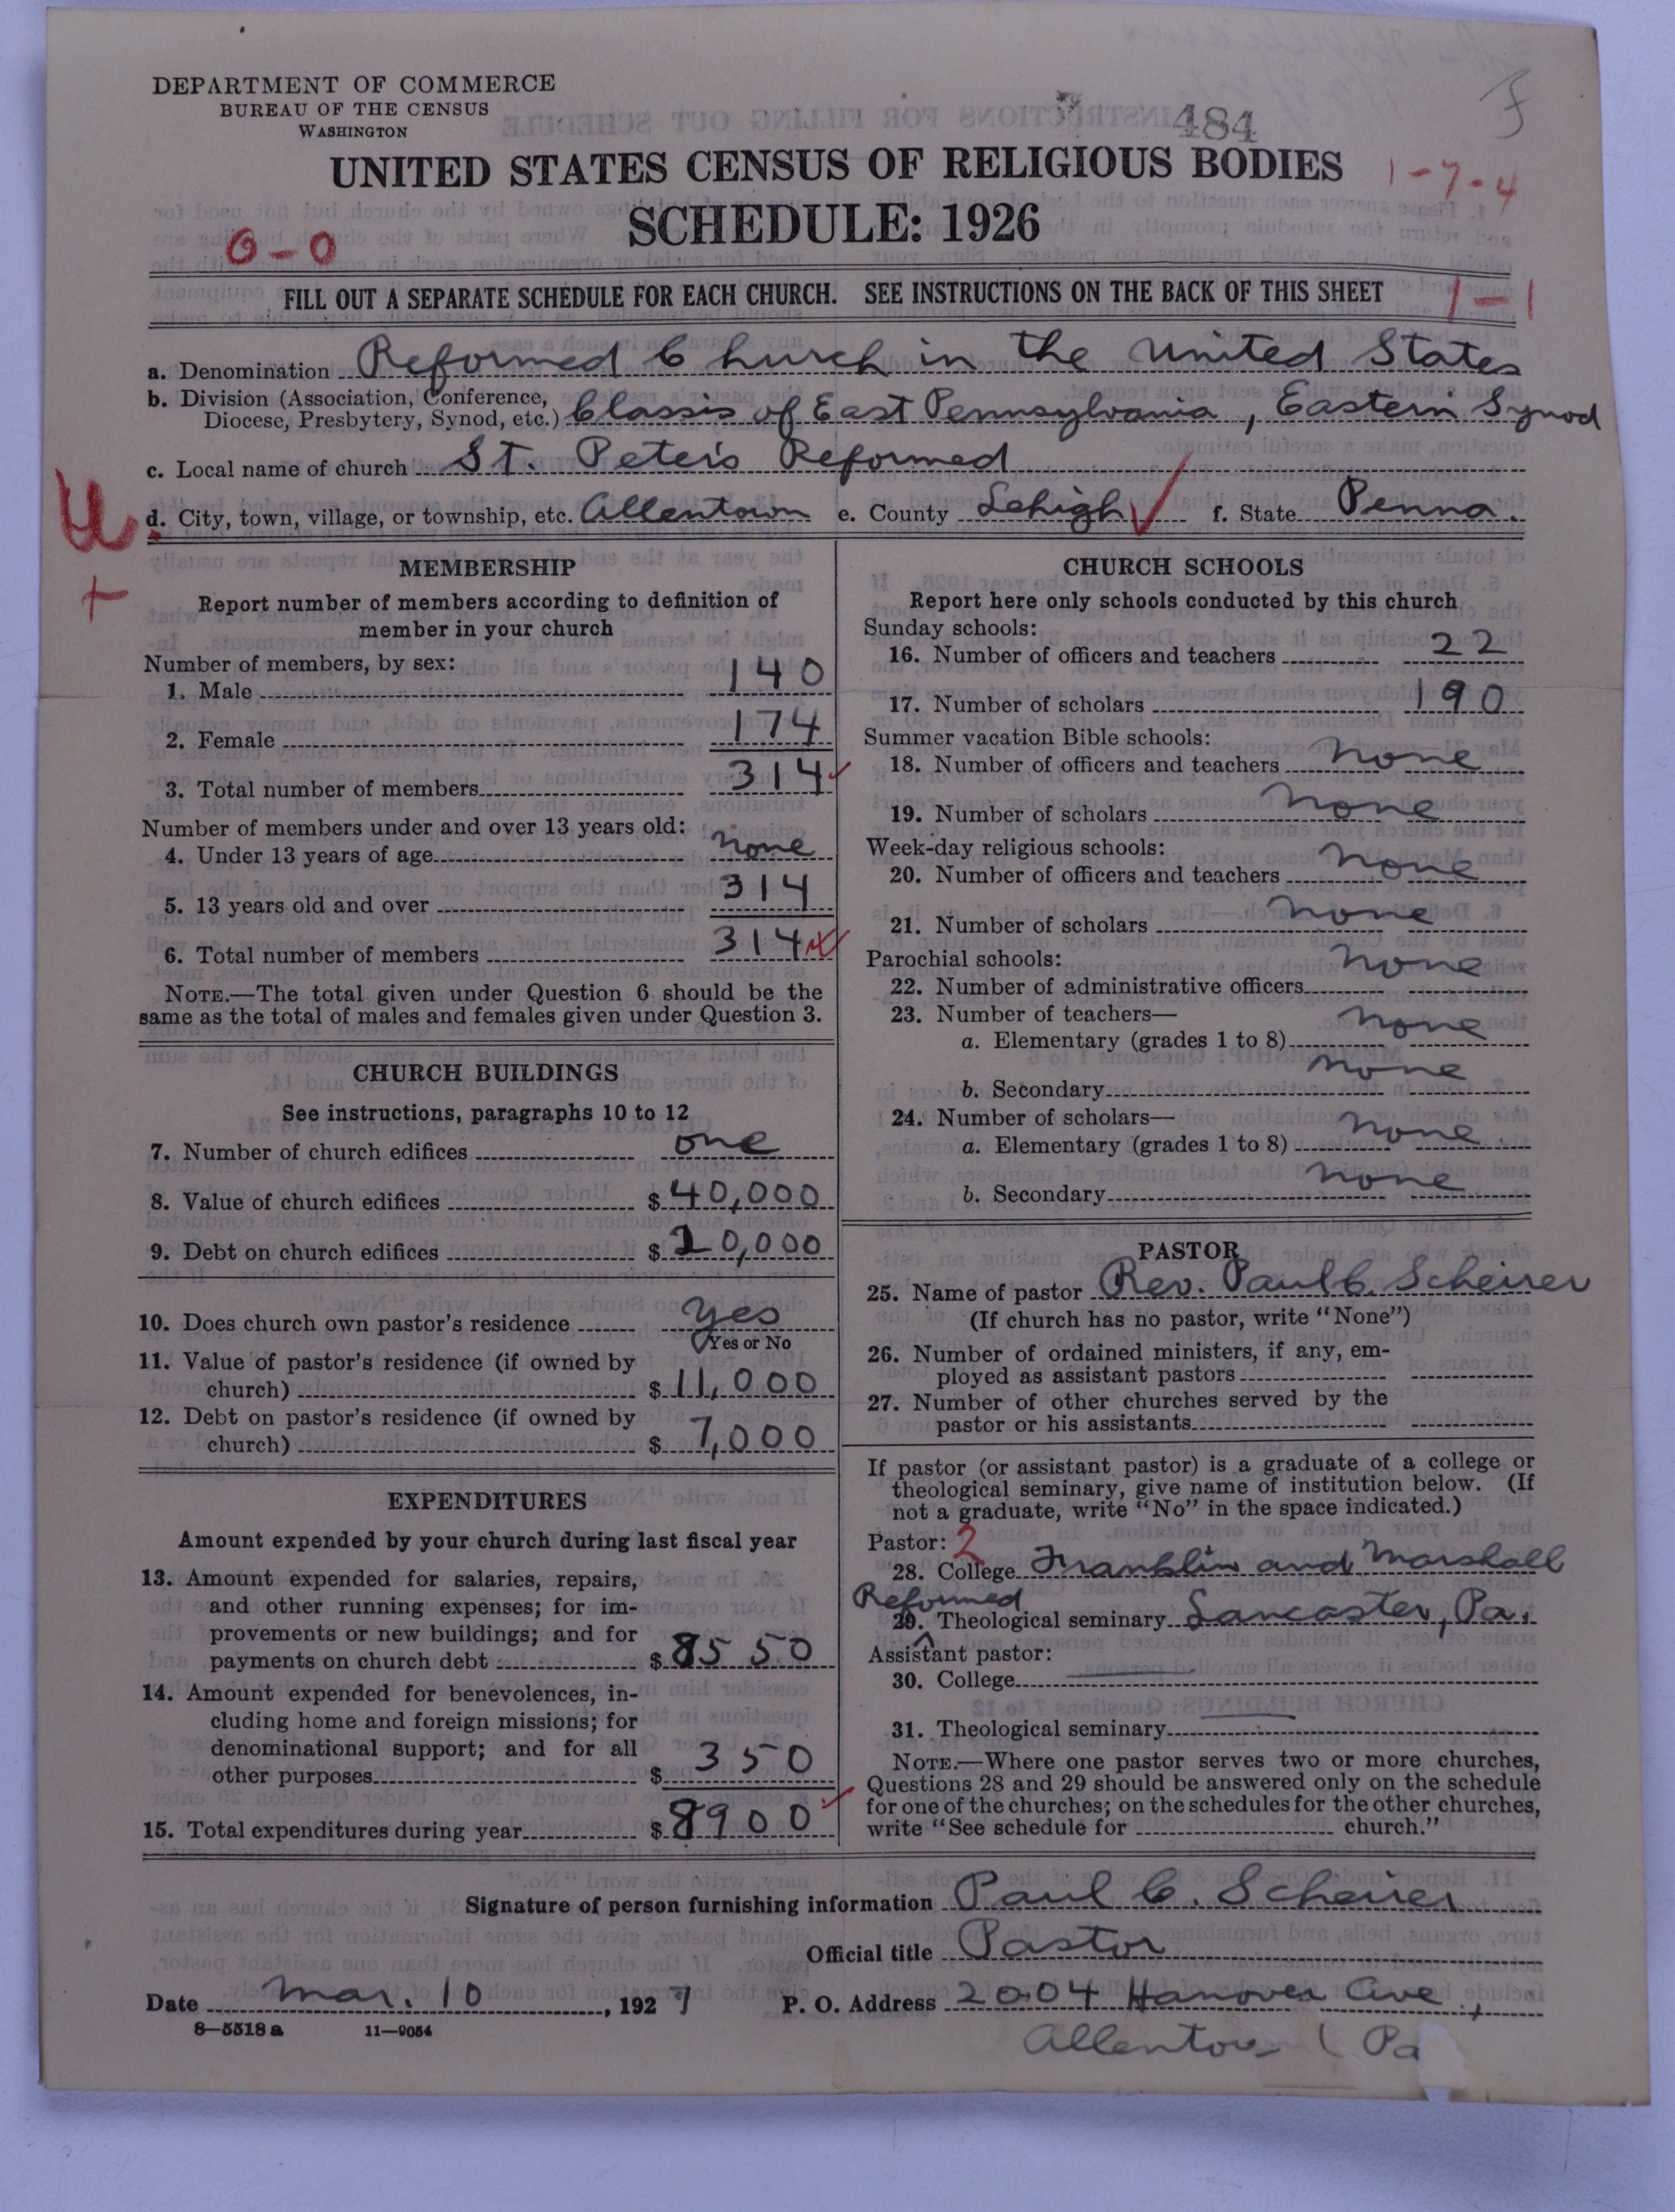 DEPARTMENT OF COMMERCE
BUREAU OF THE CENSUS
WASHINGTON
484
UNITED STATES CENSUS OF RELIGIOUS BODIES
1-7-4
SCHEDULE: 1926
0-0
FILL OUT A SEPARATE SCHEDULE FOR EACH CHURCH. SEE INSTRUCTIONS ON THE BACK OF THIS SHEET
1-1
a. Denomination Reformed Church in the United States
b. Division (Association, Conference,
Diocese, Presbytery, Synod, etc.) Classis of East Pennsylvania, Eastern Synod
c. Local name of church St. Peter's Reformed
d. City, town, village, or township, etc. Allentown e. County Lehigh f. State Penna.
MEMBERSHIP
Report number of members according to definition of
member in your church
Number of members, by sex:
1. Male 140
2. Female 174
3. Total number of members 314
Number of members under and over 13 years old:
4. Under 13 years of age none
5. 13 years old and over 314
6. Total number of members 314
NOTE.—The total given under Question 6 should be the
same as the total of males and females given under Question 3.
CHURCH BUILDINGS
See instructions, paragraphs 10 to 12
7. Number of church edifices one
8. Value of church edifices $40,000
9. Debt on church edifices $20,000
10. Does church own pastor's residence yes
Yes or No
11. Value of pastor's residence (if owned by
church) $11,000
12. Debt on pastor's residence (if owned by
church) $7,000
EXPENDITURES
Amount expended by your church during last fiscal year
13. Amount expended for salaries, repairs,
and other running expenses; for im-
provements or new buildings; and for
payments on church debt $8550
14. Amount expended for benevolences, in-
cluding home and foreign missions; for
denominational support; and for all
other purposes $350
15. Total expenditures during year $8900
CHURCH SCHOOLS
Report here only schools conducted by this church
Sunday schools:
16. Number of officers and teachers 22
17. Number of scholars 190
Summer vacation Bible schools:
18. Number of officers and teachers none
19. Number of scholars none
Week-day religious schools:
20. Number of officers and teachers none
21. Number of scholars none
Parochial schools:
22. Number of administrative officers none
23. Number of teachers—
a. Elementary (grades 1 to 8) none
b. Secondary none
24. Number of scholars—
a. Elementary (grades 1 to 8) none
b. Secondary none
PASTOR
25. Name of pastor Rev. Paul C. Scheirer
(If church has no pastor, write "None")
26. Number of ordained ministers, if any, em-
ployed as assistant pastors
27. Number of other churches served by the
pastor or his assistants
If pastor (or assistant pastor) is a graduate of a college or
theological seminary, give name of institution below. (If
not a graduate, write "No" in the space indicated.)
Pastor: 2
28. College Franklin and Marshall
Reformed
29. Theological seminary Lancaster, Pa.
Assistant pastor:
30. College
31. Theological seminary
NOTE.—Where one pastor serves two or more churches,
Questions 28 and 29 should be answered only on the schedule
for one of the churches; on the schedules for the other churches,
write "See schedule for church."
Signature of person furnishing information Paul C. Scheirer
Official title Pastor
Date Mar. 10, 1927 P. O. Address 2004 Hanover Ave.,
8—5518a 11—9054
Allentow Pa